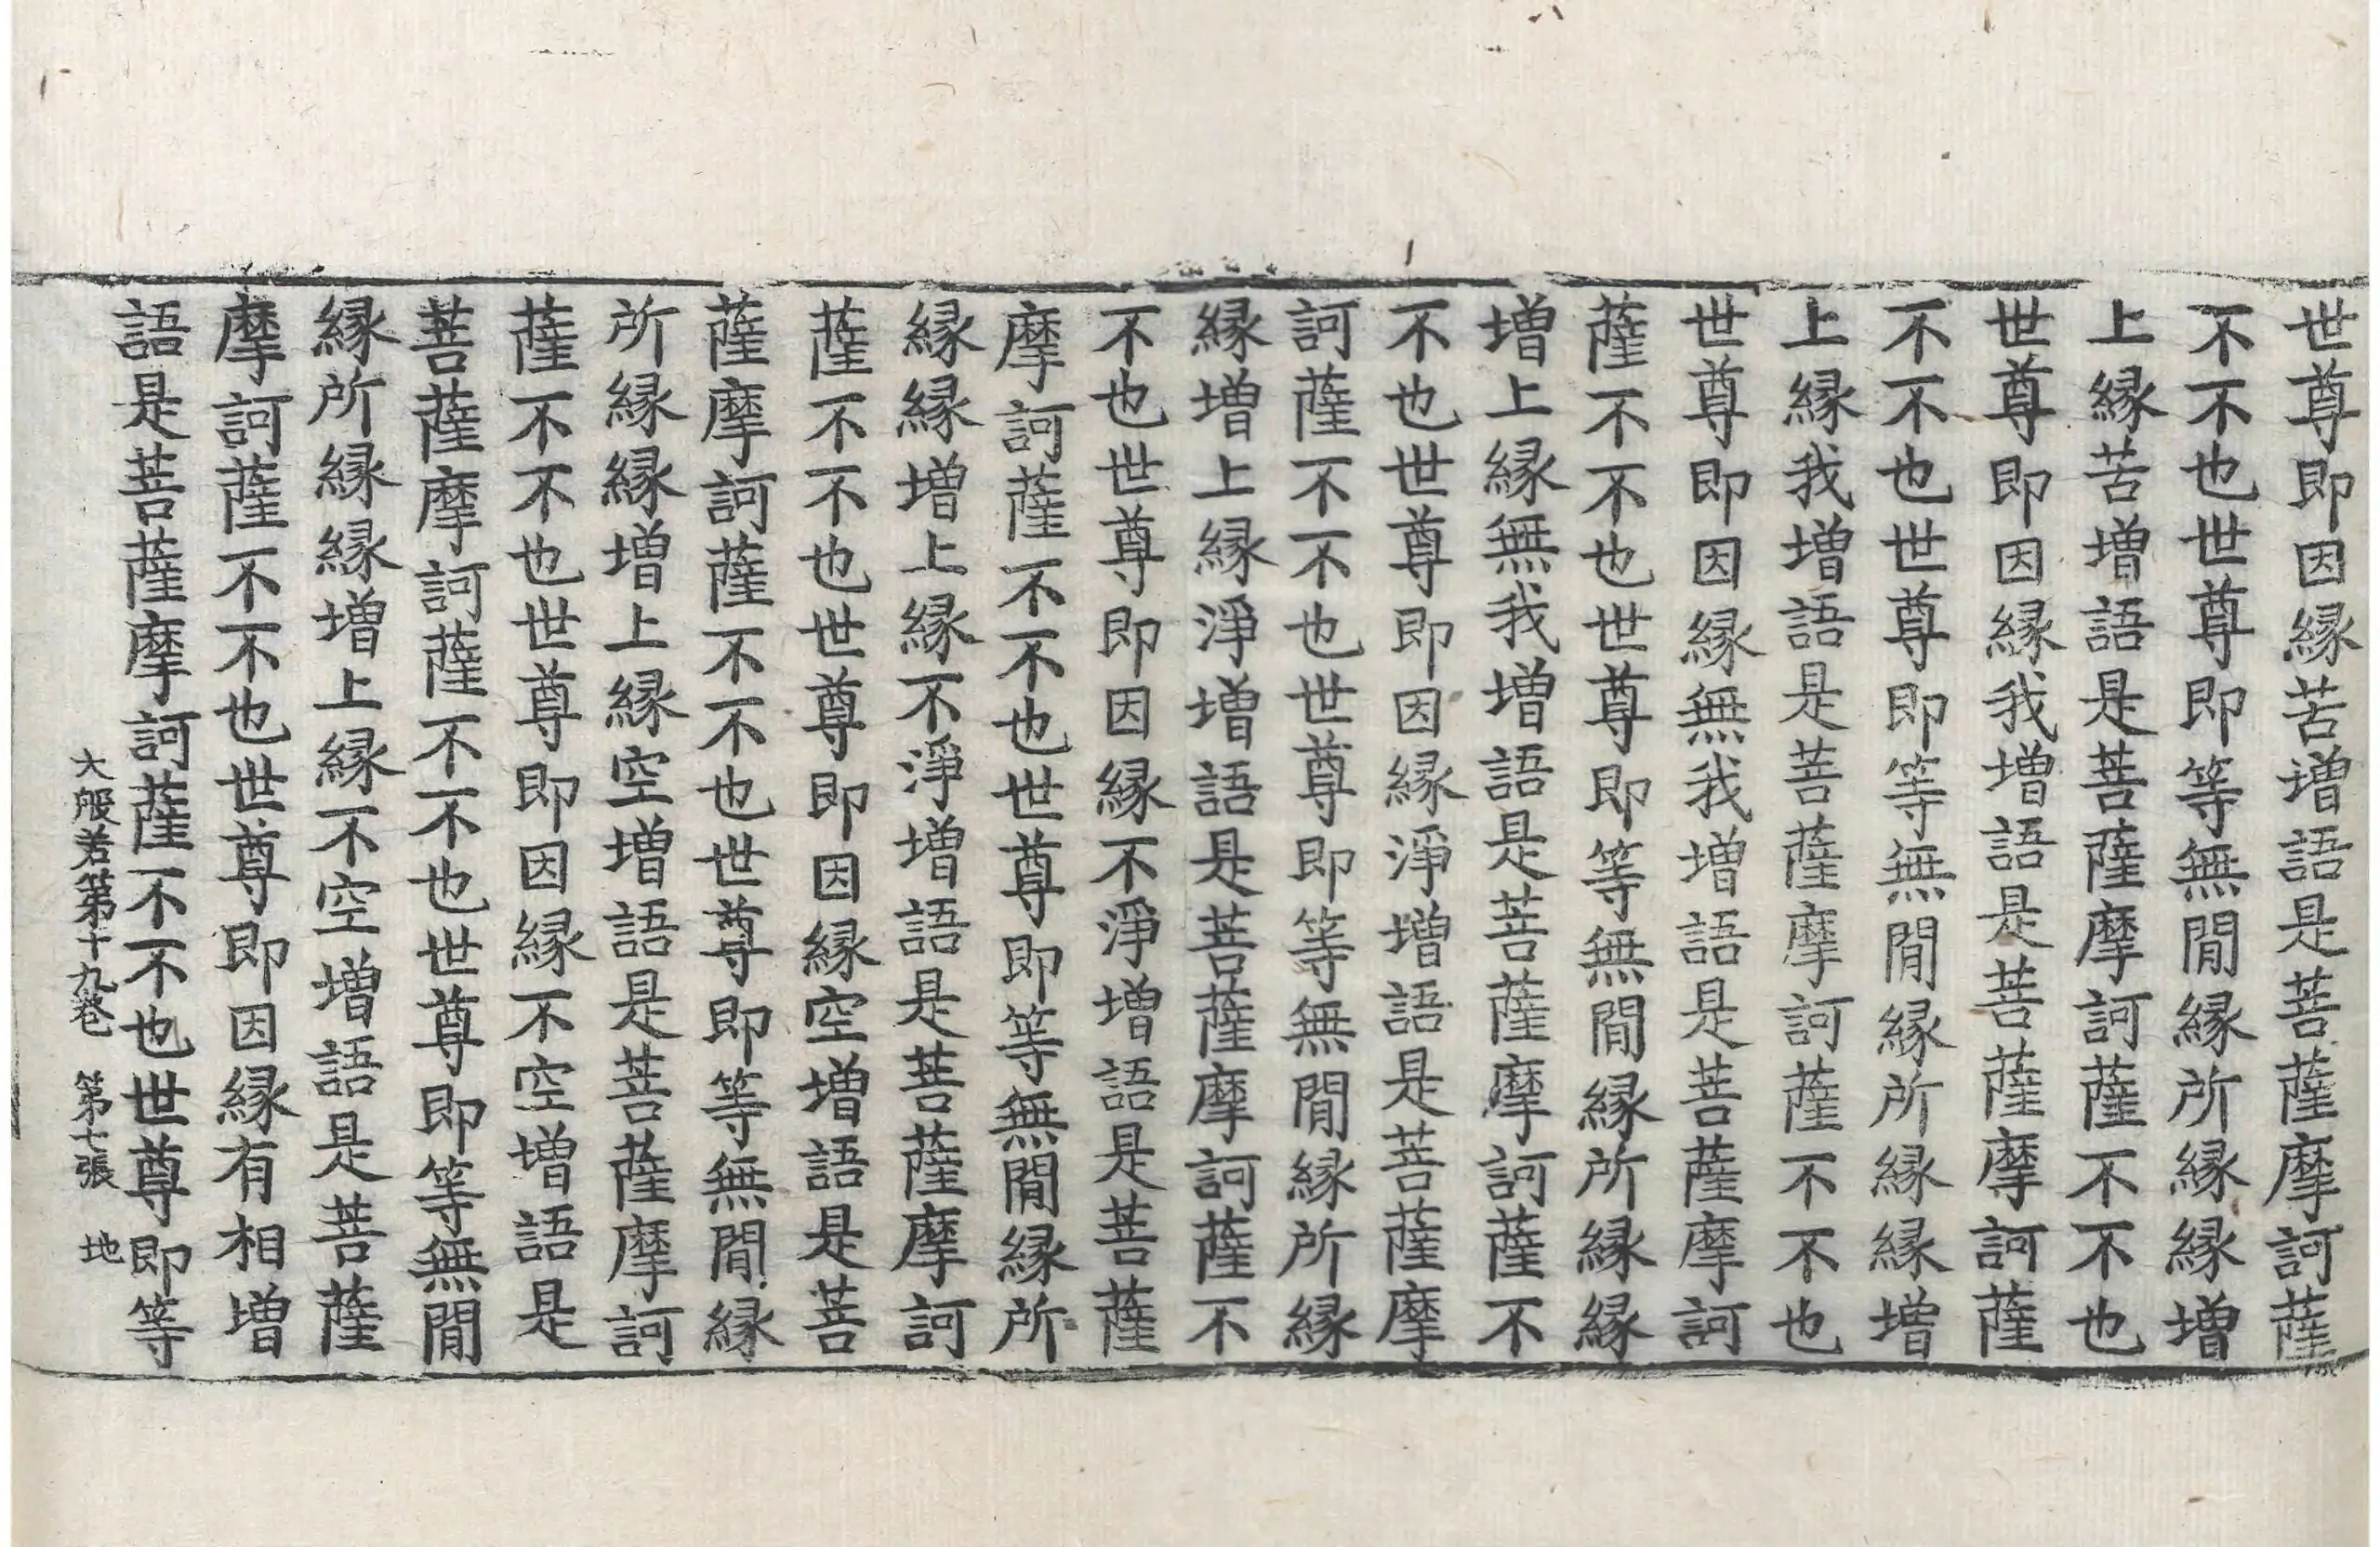 世尊即因縁苦增語是菩薩摩訶薩
不不也世尊即等無間縁所縁縁增
上縁苦增語是菩薩摩訶薩不不也
世尊即因縁我增語是菩薩摩訶薩
不不也世尊即等無間縁所縁縁增
上縁我增語是菩薩摩訶薩不不也
世尊即因縁無我增語是菩薩摩訶
薩不不也世尊即等無間縁所縁縁
增上縁無我增語是菩薩摩訶薩不
不也世尊即因縁淨增語是菩薩摩
訶薩不不也世尊即等無間縁所縁
縁增上縁淨增語是菩薩摩訶薩不
不也世尊即因縁不淨增語是菩薩
摩訶薩不不也世尊即等無間縁所
縁縁增上縁不淨增語是菩薩摩訶
薩不不也世尊即因縁空增語是菩
薩摩訶薩不不也世尊即等無間縁
所縁縁增上縁空增語是菩薩摩訶
薩不不也世尊即因縁不空增語是
菩薩摩訶薩不不也世尊即等無間
縁所縁縁增上縁不空增語是菩薩
摩訶薩不不也世尊即因縁有相增
語是菩薩摩訶薩不不也世尊即等
大般若第十九卷　第七張　地